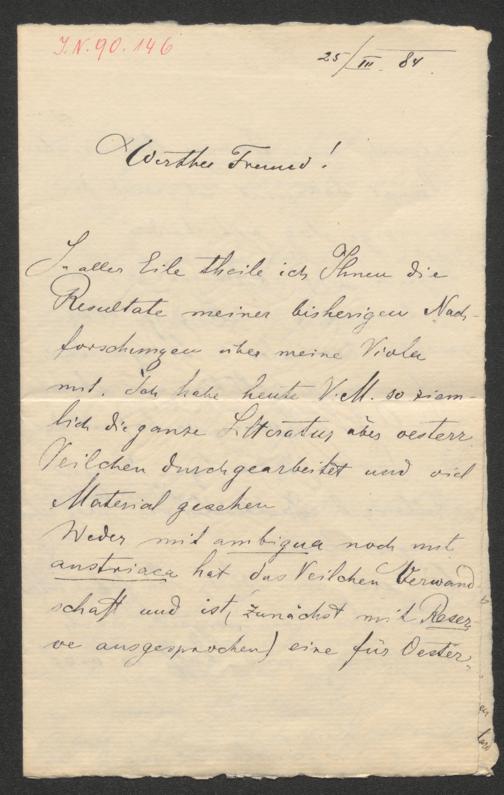 J.N. 90.146
25/III. 84.
Werther Freund!
In aller Eile theile ich Ihnen die
Resultate meiner bisherigen Nach-
forschungen über meine Viola
mit. Ich habe heute V.M. so ziem-
lich die ganze Literatur über oesterr.
Veilchen durchgearbeitet und viel
Material gesehen
Weder mit ambigua noch mit
austriaca hat das Veilchen Verwand
schaft und ist, (zunächst mit Reser-
ve ausgesprochen) eine für Oester-